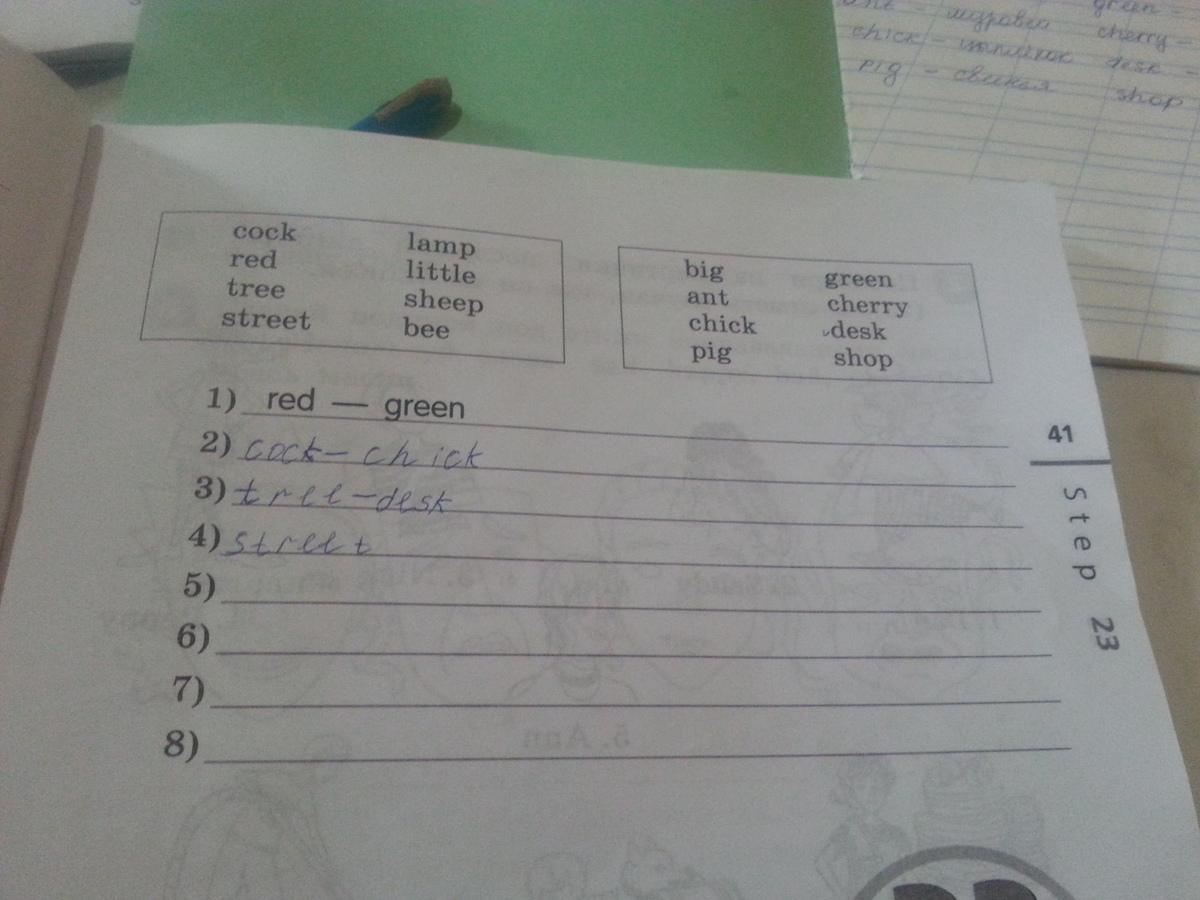 green –
муравей cherry –
chick – цыплёнок desk –
pig – свинья shop
cock lamp
red little
tree sheep
street bee
big green
ant cherry
chick desk
pig shop
1) red — green
2) cock – chick
3) tree – desk
4) street
5)
6)
7)
8)
41
Step 23
5. Ann